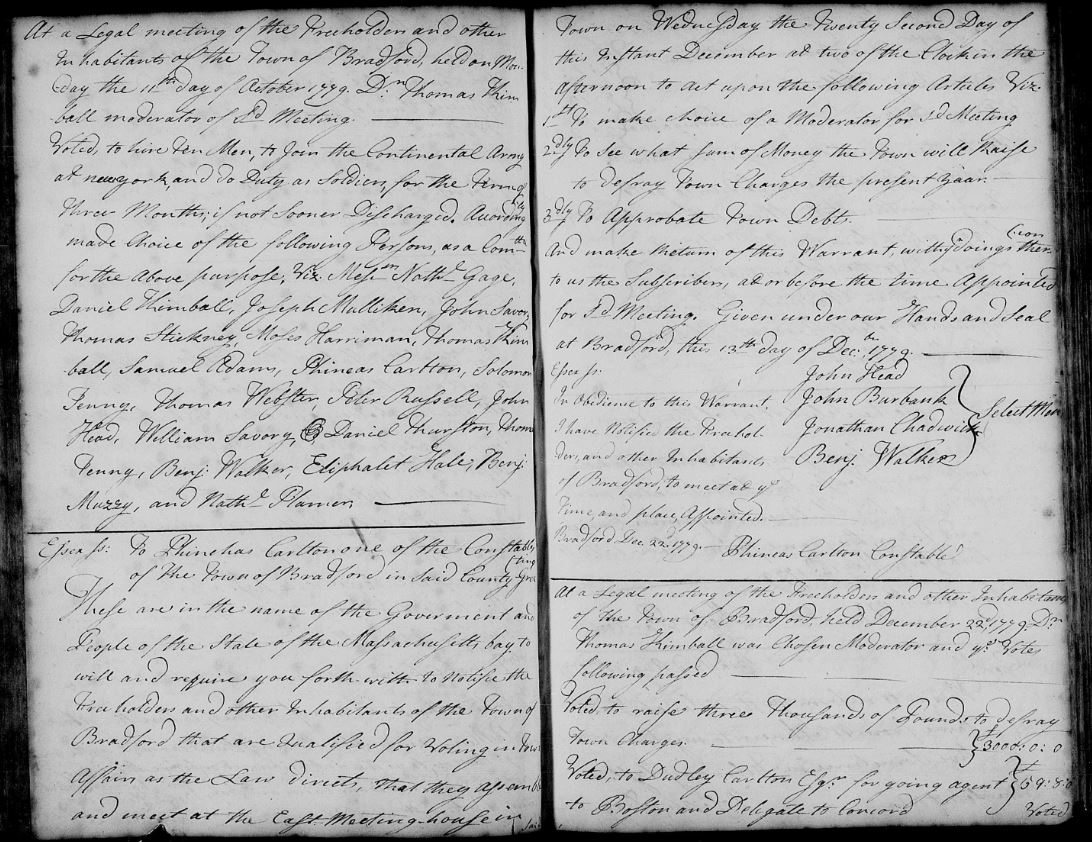 At a Legal meeting of the Freeholders and other
Inhabitants of the Town of Bradford, held on Mon-
day the 11th day of October 1779. Dn Thomas Kim
ball moderator of sd Meeting.
Voted, to hire Ten Men, to Join the Continental Army
at newyork, and do Duty as Soldiers, for the Term of
Three Months, if not Sooner Discharged. Acordingly
made Choice of the following Persons, as a Comtte
for the above purpose, Viz. Messrs Nathl Gage,
Daniel Kimball, Joseph Mulliken, John Savory
Thomas Stickney, Moses Harriman, Thomas Kim
ball, Samuel Adams, Phineas Carlton, Solomon
Tenny, Thomas Webster, Peter Russell, John
Head, William Savory, & Daniel Thurston, Thoms
Tenny, Benj. Walker, Eliphalet Hale, Benj.
Muzzy, and Nathl Plumer
Essex ss: To Phinehas Carlton one of the Constables
of the Town of Bradford in Said County Greeting
These are in the name of the Goverment and
People of the State of the Massachusetts bay to
will and require you forth with to Notifie the
Freeholders and other Inhabitants of the Town of
Bradford that are Qualified for Voting in Town
Affairs as the Law directs, that they assemble
and meet at the East Meeting-house in Said
Town on Wednesday the Twenty Second Day of
this Instant December at two of the Clock in the
afternoon to act upon the following Articles Viz.
1st To make choice of a Moderator for sd Meeting
2dly To See what Sum of Money the Town will Raise
to defray Town Charges the present Year.
3dly To Approbate Town Debts.
And make Return of this Warrant, with yr Doings thereon
to us the Subscribers, at or before the time Appointed
for sd Meeting. Given under our Hands and Seal
at Bradford, this 13th day of Decbr 1779.
Essex ss:
John Head
In Obedience to this Warrant,
John Burbank
I have Notified the Freehol-
Jonathan Chadwick
Select Men
ders, and other Inhabitants
Benj. Walker
of Bradford, to meet at ye
Time, and place, Appointed.
Bradford Dec. 22d 1779
Phineas Carlton Constable
At a Legal meeting of the Freeholders and other Inhabitants
of the Town of Bradford, held December 22d 1779. Dn
Thomas Kimball was Chosen Moderator and ye Votes
following passed
Voted to raise three Thousands of Pounds to defray
Town Charges. £3000: 0: 0
Voted, to Dudley Carlton Esqr for going agent
to Boston and Delegate to Concord
Voted